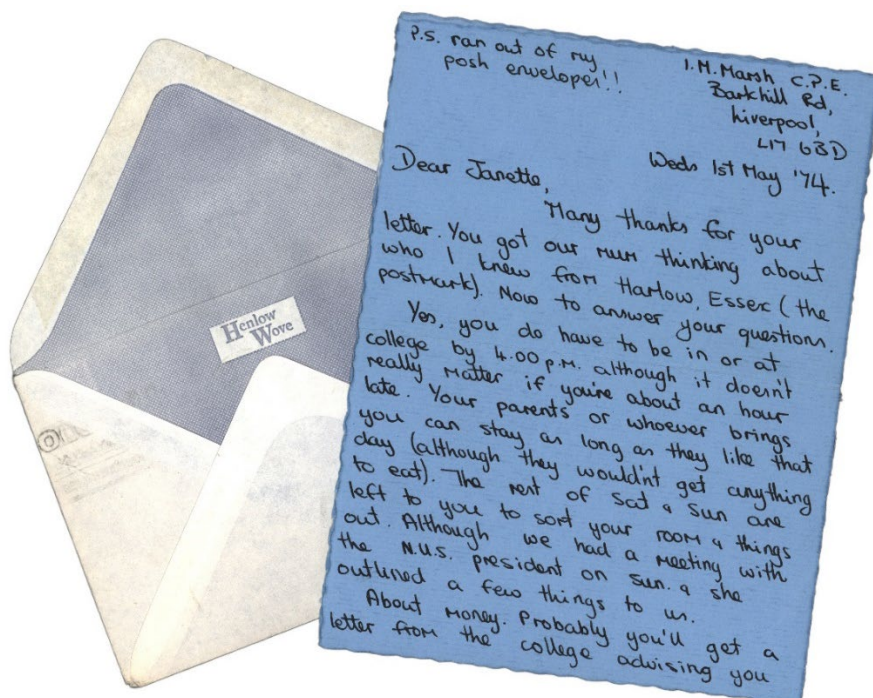 Henlow
Wove
P.S. ran out of my
posh envelopes!!
I.M. Marsh C.P.E.
Barkhill Rd,
Liverpool,
L17 6BD
Weds 1st May '74.
Dear Janette,
Many thanks for your
letter. You got our mum thinking about
who I knew from Harlow, Essex (the
postmark). Now to answer your questions.
Yes, you do have to be in or at
college by 4.00 p.m. although it doesn't
really matter if you're about an hour
late. Your parents or whoever brings
you can stay as long as they like that
day (although they wouldn't get anything
to eat). The rest of Sat & Sun are
left to you to sort your room & things
out. Although we had a meeting with
the N.U.S. president on Sun. & she
outlined a few things to us.
About money. Probably you'll get a
letter from the college advising you